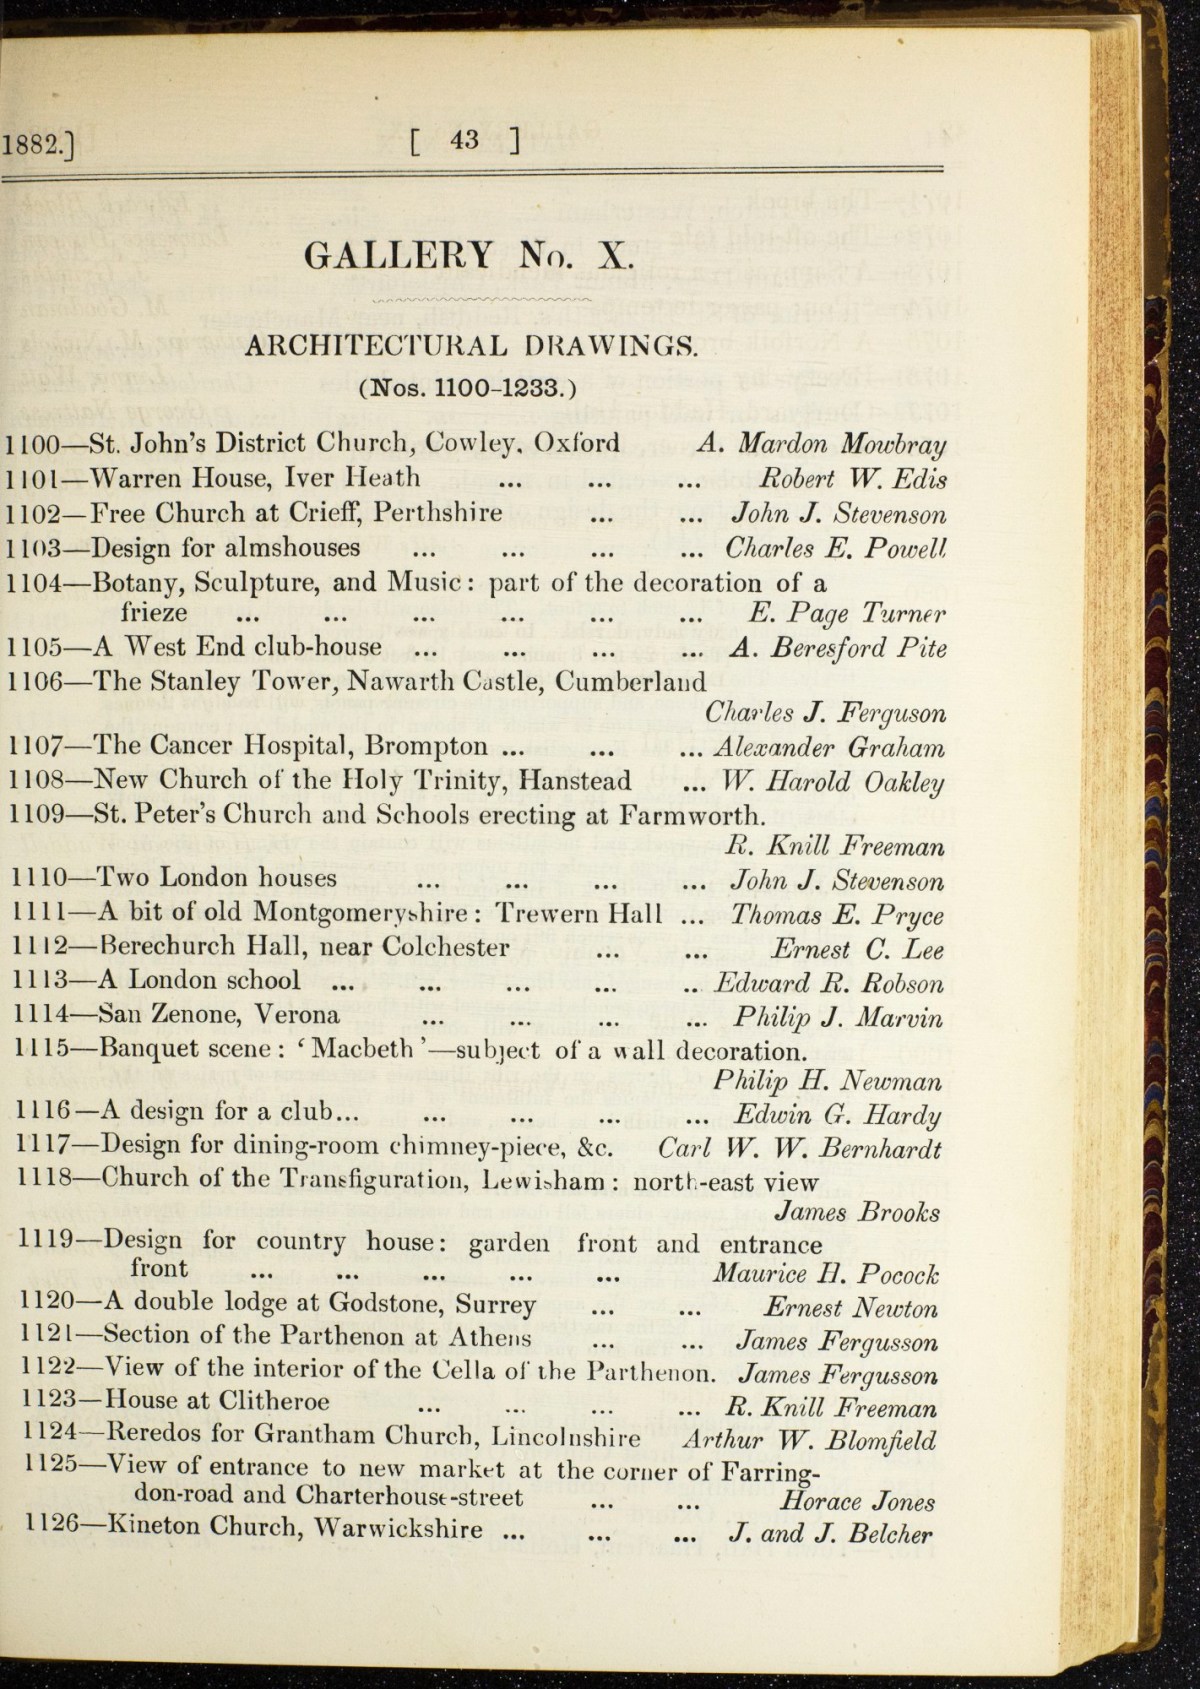 1882.] [ 43 ]
GALLERY No. X.
ARCHITECTURAL DRAWINGS.
(Nos. 1100-1233.)
1100—St. John's District Church, Cowley, Oxford A. Mardon Mowbray
1101—Warren House, Iver Heath ... ... ... Robert W. Edis
1102—Free Church at Crieff, Perthshire ... ... John J. Stevenson
1103—Design for almshouses ... ... ... ... Charles E. Powell
1104—Botany, Sculpture, and Music: part of the decoration of a
frieze ... ... ... ... ... ... E. Page Turner
1105—A West End club-house ... ... ... ... A. Beresford Pite
1106—The Stanley Tower, Nawarth Castle, Cumberland
Charles J. Ferguson
1107—The Cancer Hospital, Brompton ... ... ... Alexander Graham
1108—New Church of the Holy Trinity, Hanstead ... W. Harold Oakley
1109—St. Peter's Church and Schools erecting at Farmworth.
R. Knill Freeman
1110—Two London houses ... ... ... ... John J. Stevenson
1111—A bit of old Montgomeryshire: Trewern Hall ... Thomas E. Pryce
1112—Berechurch Hall, near Colchester ... ... Ernest C. Lee
1113—A London school ... ... ... ... .. Edward R. Robson
1114—San Zenone, Verona ... ... ... ... Philip J. Marvin
1115—Banquet scene: ‘Macbeth’—subject of a wall decoration.
Philip H. Newman
1116—A design for a club... ... ... ... ... Edwin G. Hardy
1117—Design for dining-room chimney-piece, &c. Carl W. W. Bernhardt
1118—Church of the Transfiguration, Lewisham: north-east view
James Brooks
1119—Design for country house: garden front and entrance
front ... ... ... ... ... Maurice H. Pocock
1120—A double lodge at Godstone, Surrey ... ... Ernest Newton
1121—Section of the Parthenon at Athens ... ... James Fergusson
1122—View of the interior of the Cella of the Parthenon. James Fergusson
1123—House at Clitheroe ... ... ... ... R. Knill Freeman
1124—Reredos for Grantham Church, Lincolnshire Arthur W. Blomfield
1125—View of entrance to new market at the corner of Farring-
don-road and Charterhouse-street ... ... Horace Jones
1126—Kineton Church, Warwickshire ... ... ... J. and J. Belcher